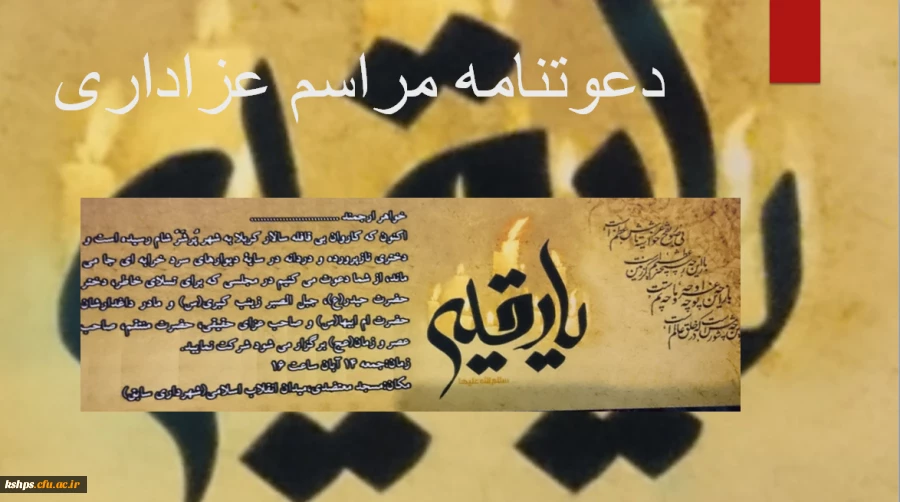 دعوتنامه مراسم عزاداری
خواهر ارجمند ............................
اکنون که کاروان بی قافله سالار کربلا به شهر پُرشَرّ شام رسیده است و
دختری نازپرورده و دردانه در سایهٔ دیوارهای سرد خرابه ای جا می
ماند، از شما دعوت می کنیم در مجلسی که برای تسلای خاطر، دختر
حضرت حیدر(ع)، جبل الصبر زینب کبری(س) و مادر داغدارشان
حضرت ام ابیها(س) و صاحب عزای حقیقی، حضرت منتقم، صاحب
عصر و زمان(عج) برگزار می شود شرکت نمایید.
زمان:جمعه ۱۴ آبان ساعت ۱۶
مکان:مسجد معتضدی،میدان انقلاب اسلامی(شهرداری سابق)
یا رقیه
سلام الله علیها
kshps.cfu.ac.ir